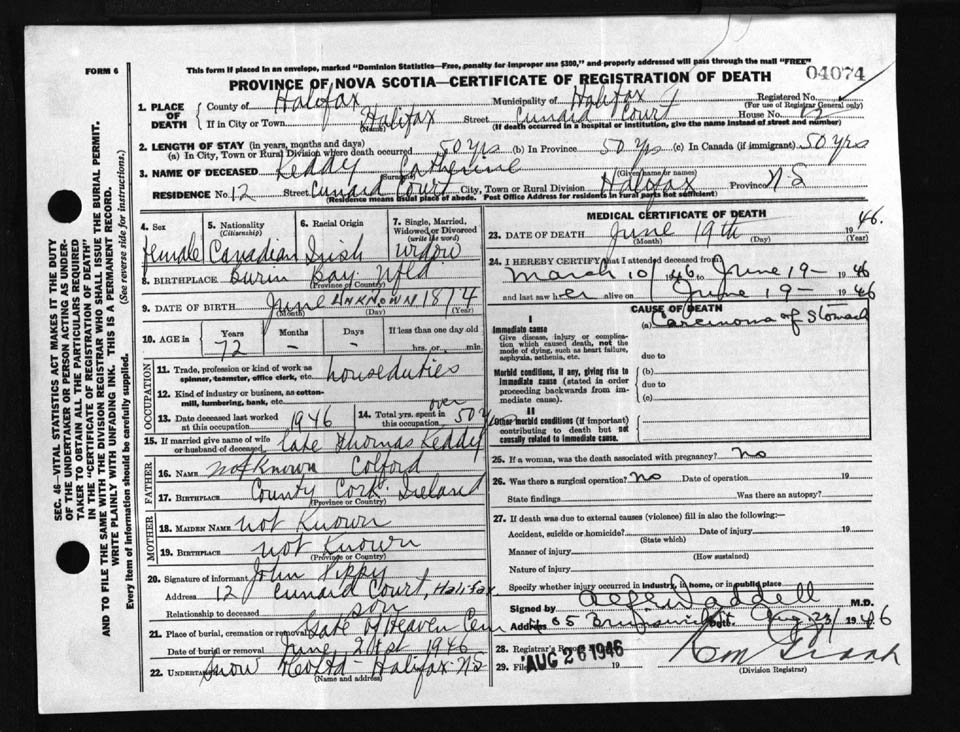 This form if placed in an envelope, marked "Dominion Statistics—Free, penalty for improper use $300," and properly addressed will pass through the mail "FREE"
FORM 6
PROVINCE OF NOVA SCOTIA—CERTIFICATE OF REGISTRATION OF DEATH
04074
SEC. 46—VITAL STATISTICS ACT MAKES IT THE DUTY
OF THE UNDERTAKER OR PERSON ACTING AS UNDER-
TAKER TO OBTAIN ALL THE PARTICULARS REQUIRED
IN THE "CERTIFICATE OF REGISTRATION OF DEATH"
AND TO FILE THE SAME WITH THE DIVISION REGISTRAR WHO SHALL ISSUE THE BURIAL PERMIT.
WRITE PLAINLY WITH UNFADING INK. THIS IS A PERMANENT RECORD.
Every item of Information should be carefully supplied. (See reverse side for instructions.)
1. PLACE OF DEATH
County of Halifax Municipality of Halifax Registered No.
(For use of Registrar General only)
If in City or Town Halifax Street Cunard Court House No. 12
(Name) (If death occurred in a hospital or institution, give the name instead of street and number)
2. LENGTH OF STAY (in years, months and days)
(a) In City, Town or Rural Division where death occurred 50 yrs (b) In Province 50 yrs (c) In Canada (if immigrant) 50 yrs
3. NAME OF DECEASED Keddy Catherine
(Surname) (Given name or names)
RESIDENCE No. 12 Street Cunard Court City, Town or Rural Division Halifax Province N.S
(Residence means usual place of abode. Post Office Address for residents in rural parts not sufficient)
4. Sex 5. Nationality (Citizenship) 6. Racial Origin 7. Single, Married, Widowed or Divorced (write the word)
female Canadian Irish widow
8. BIRTHPLACE Burin Bay. Nfld
(Province or Country)
9. DATE OF BIRTH June unknown 1874
(Month) (Day) (Year)
10. AGE in Years Months Days If less than one day old
72 - - hrs. or min.
OCCUPATION
11. Trade, profession or kind of work as spinner, teamster, office clerk, etc. houseduties
12. Kind of industry or business, as cotton-mill, lumbering, bank, etc.
13. Date deceased last worked at this occupation 1946
14. Total yrs. spent in this occupation over 50 yrs
15. If married give name of wife or husband of deceased late Thomas Keddy
FATHER
16. NAME not known Colford
17. BIRTHPLACE County Cork Ireland
(Province or Country)
MOTHER
18. MAIDEN NAME not known
19. BIRTHPLACE not known
(Province or Country)
20. Signature of informant John Pippy
Address 12 Cunard Court, Halifax
Relationship to deceased son
21. Place of burial, cremation or removal Gate of Heaven Cem
Date of burial or removal June 21st 1946
22. UNDERTAKER Snow & Co Ltd - Halifax N.S
(Name and address)
MEDICAL CERTIFICATE OF DEATH
23. DATE OF DEATH June 19th 1946.
(Month) (Day) (Year)
24. I HEREBY CERTIFY that I attended deceased from
March 10/1946 to June 19- 1946
and last saw her alive on June 19- 1946
CAUSE OF DEATH
I
Immediate cause
Give disease, injury or complication which caused death, not the mode of dying, such as heart failure, asphyxia, asthenia, etc.
(a) Carcinoma of Stomach
due to
Morbid conditions, if any, giving rise to immediate cause (stated in order proceeding backwards from immediate cause).
(b)
due to
(c)
II
Other morbid conditions (if important) contributing to death but not causally related to immediate cause.
25. If a woman, was the death associated with pregnancy? no
26. Was there a surgical operation? no Date of operation 19
State findings Was there an autopsy?
27. If death was due to external causes (violence) fill in also the following:—
Accident, suicide or homicide? Date of injury 19
(State which)
Manner of injury
(How sustained)
Nature of injury
Specify whether injury occurred in industry, in home, or in public place
Signed by Waddell M.D.
Address Brunswick St. Date. Aug 23/ 1946
28. Registrar's
29. Filed AUG 26 1946 19
(Division Registrar)